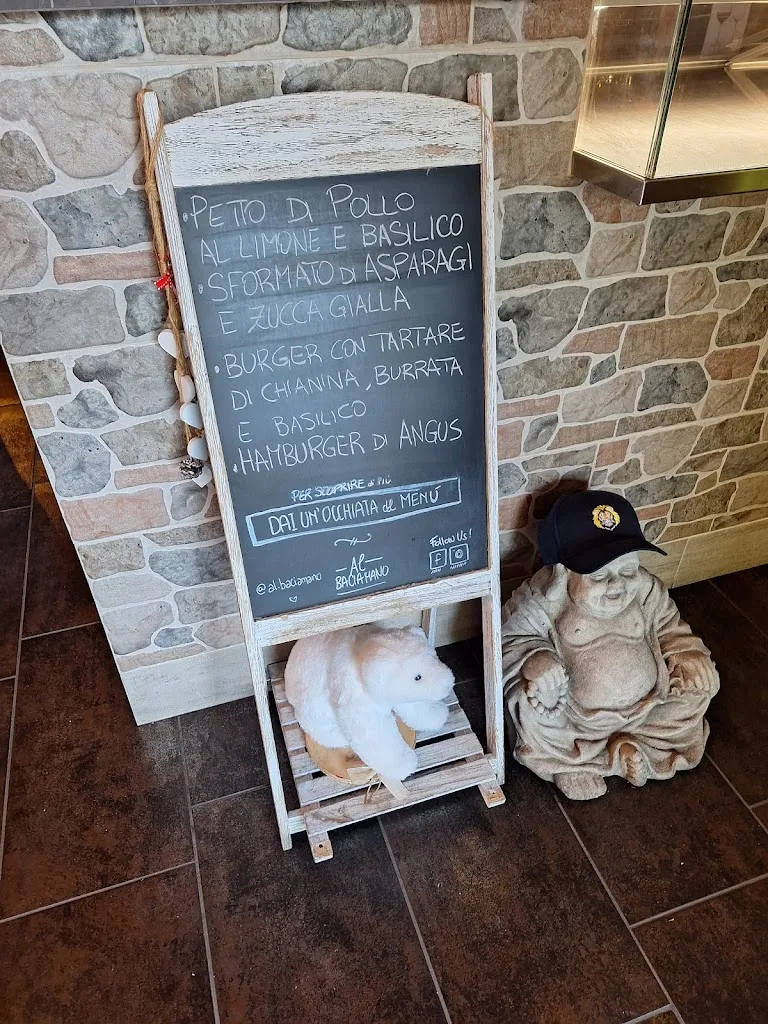 • PETTO DI POLLO
AL LIMONE E BASILICO
• SFORMATO DI ASPARAGI
E ZUCCA GIALLA
• BURGER CON TARTARE
DI CHIANINA, BURRATA
E BASILICO
• HAMBURGER DI ANGUS
PER SCOPRIRE di PIÙ
DAI UN'OCCHIATA al MENÚ
Follow Us!
AL
BACIAMANO
@al.baciamano
f